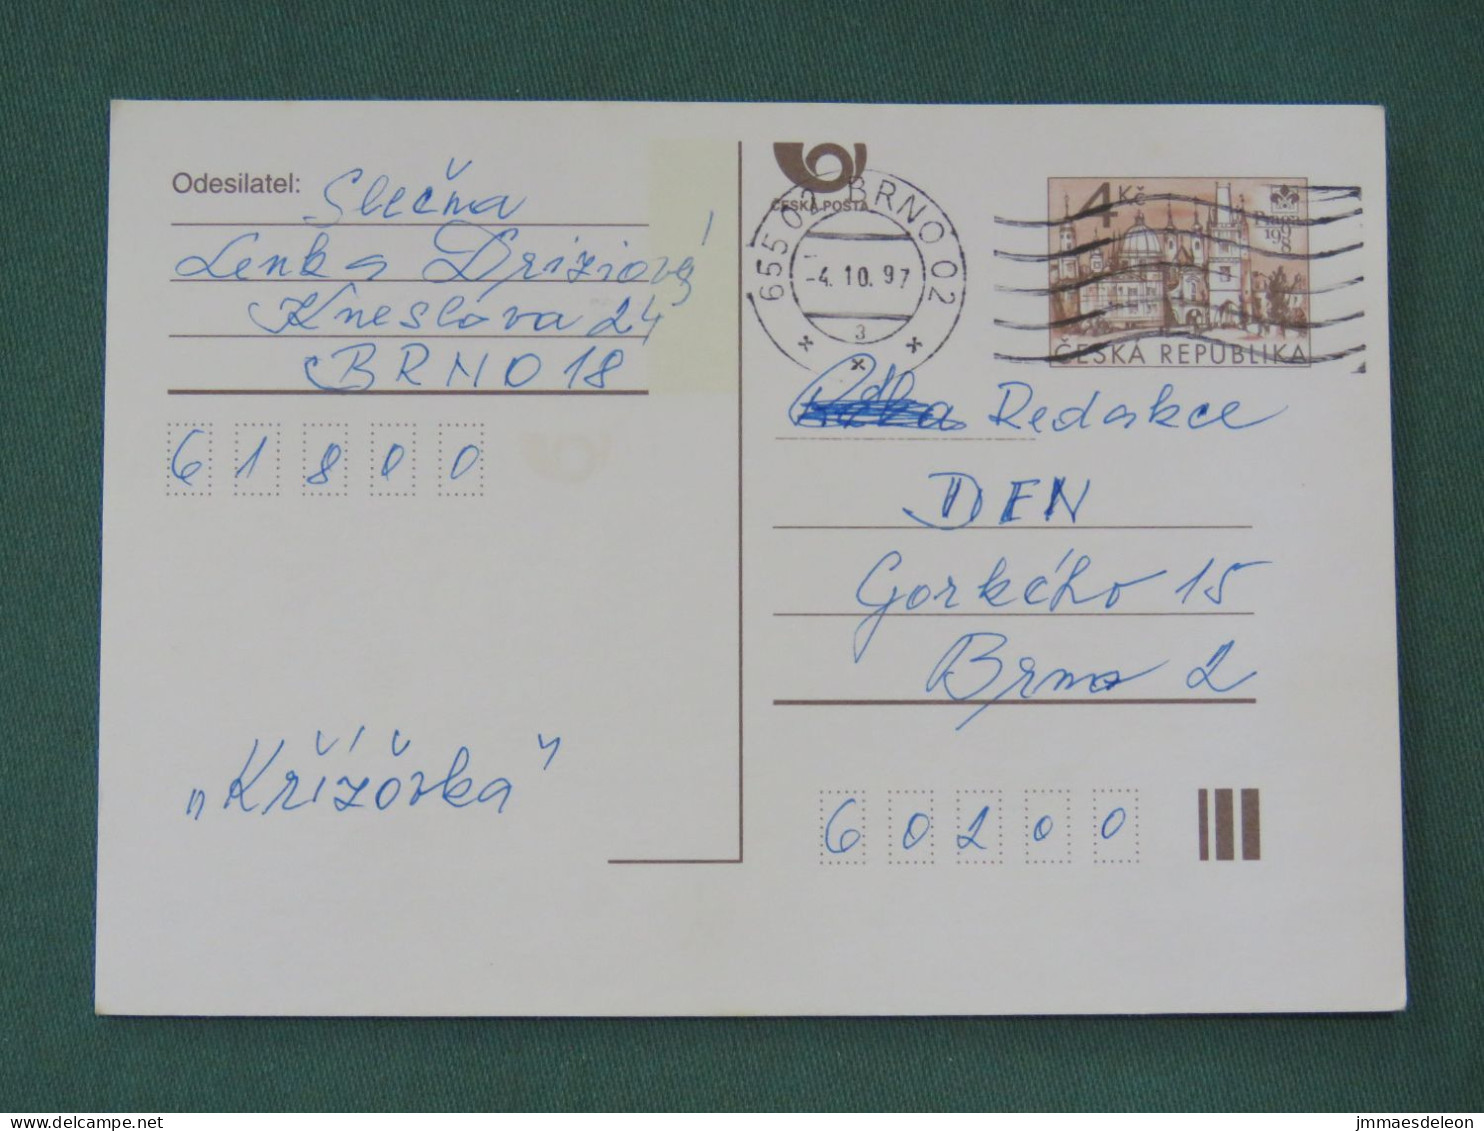 Odesilatel: Slečna
Lenka Driziová
Kneslova 24
BRNO 18
61800
„Křížovka"
ČESKÁ POŠTA
655 01 BRNO 02
-4.10.97
3
4 Kč
Praga
1998
ČESKÁ REPUBLIKA
Redakce
DEN
Gorkého 15
Brno 2
60200
www.delcampe.net
jmmaesdeleon